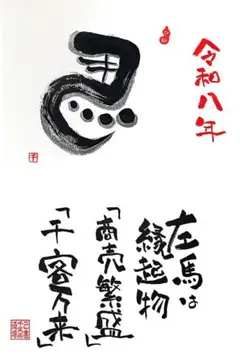 令和八年
左馬は
縁起物
「商売繁盛」
「千客万来」